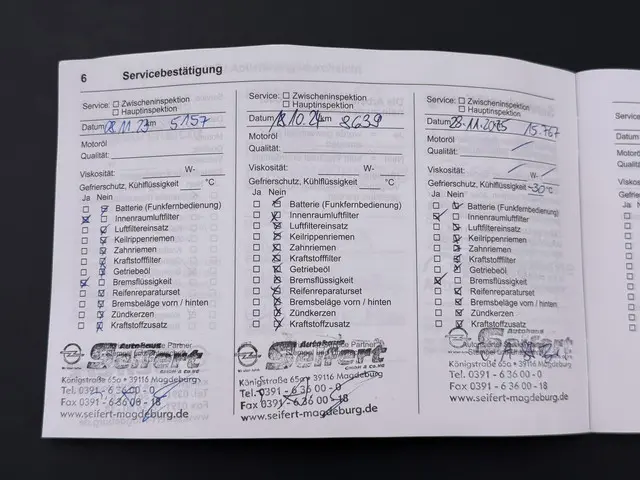 6 Servicebestätigung
Service: ☐ Zwischeninspektion
☐ Hauptinspektion
Datum 28.11.23 km 5157
Motoröl
Qualität:
Viskosität: W-
Gefrierschutz, Kühlflüssigkeit °C
Ja Nein
Batterie (Funkfernbedienung)
Innenraumluftfilter
Luftfiltereinsatz
Keilrippenriemen
Zahnriemen
Kraftstofffilter
Getriebeöl
Bremsflüssigkeit
Reifenreparaturset
Bremsbeläge vorn / hinten
Zündkerzen
Kraftstoffzusatz
Autohaus Partner
Seifert
GmbH & Co. KG
Königstraße 65a • 39116 Magdeburg
Tel. 0391 - 6 36 00 - 0
Fax 0391 - 6 36 00 - 18
www.seifert-magdeburg.de
Service: ☐ Zwischeninspektion
☐ Hauptinspektion
Datum 18.10.24 km 8639
Motoröl
Qualität:
Viskosität: W-
Gefrierschutz, Kühlflüssigkeit °C
Ja Nein
Batterie (Funkfernbedienung)
Innenraumluftfilter
Luftfiltereinsatz
Keilrippenriemen
Zahnriemen
Kraftstofffilter
Getriebeöl
Bremsflüssigkeit
Reifenreparaturset
Bremsbeläge vorn / hinten
Zündkerzen
Kraftstoffzusatz
Autohaus Partner
Seifert
GmbH & Co. KG
Königstraße 65a • 39116 Magdeburg
Tel. 0391 - 6 36 00 - 0
Fax 0391 - 6 36 00 - 18
www.seifert-magdeburg.de
Service: ☐ Zwischeninspektion
☐ Hauptinspektion
Datum 15.767
Motoröl
Qualität:
Viskosität: W-
Gefrierschutz, Kühlflüssigkeit -30°C
Ja Nein
Batterie (Funkfernbedienung)
Innenraumluftfilter
Luftfiltereinsatz
Keilrippenriemen
Zahnriemen
Kraftstofffilter
Getriebeöl
Bremsflüssigkeit
Reifenreparaturset
Bremsbeläge vorn / hinten
Zündkerzen
Kraftstoffzusatz
Autohaus
Königstraße 65a • 39116 Magdeburg
Tel. 0391 - 6 36 00 - 0
Fax 0391 - 6 36 00 - 18
www.seifert-magdeburg.de
Service
Datum
Motoröl
Qualität
Viskosi
Gefriers
Ja Ne